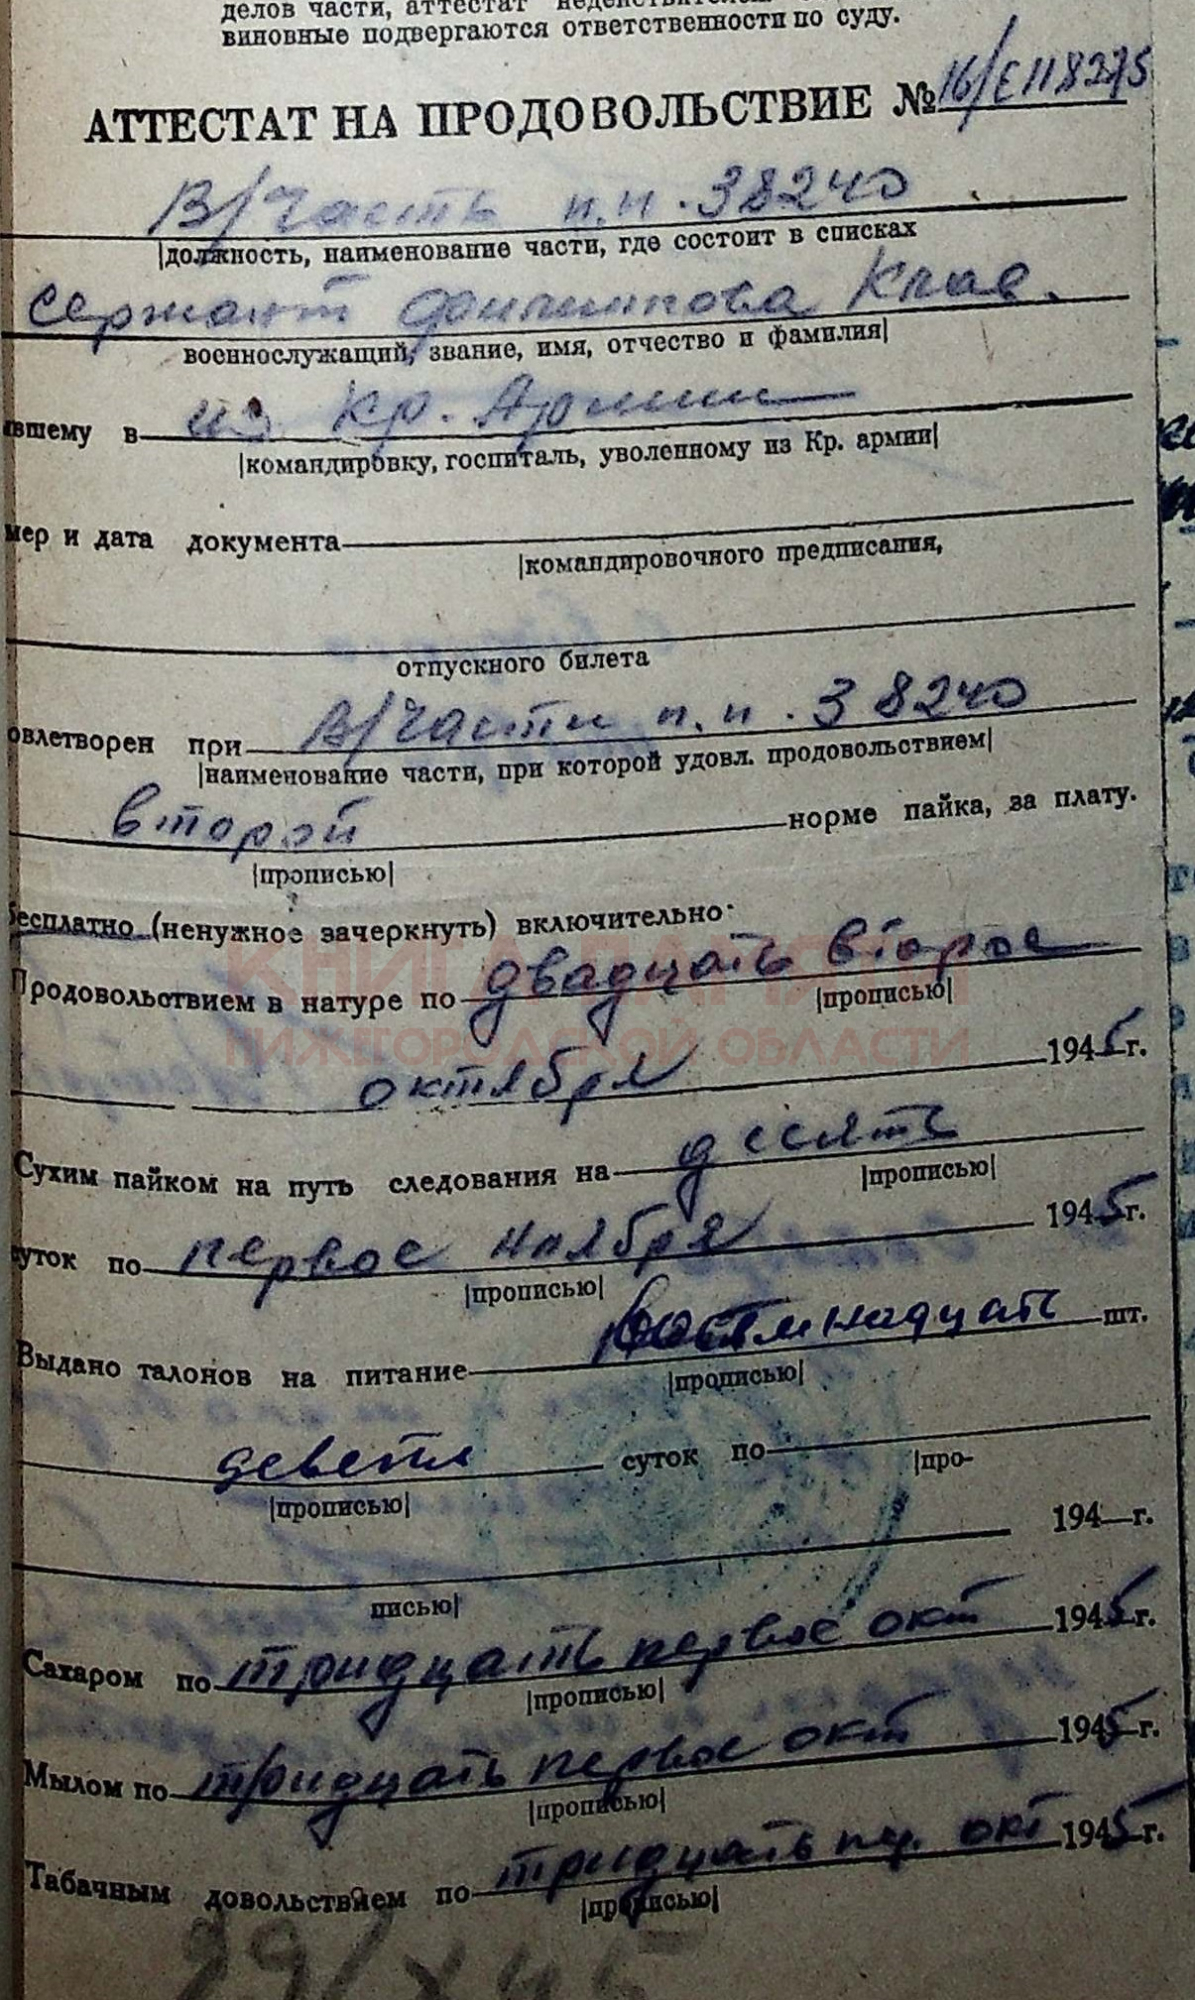 делов части, аттестат
виновные подвергаются ответственности по суду.
АТТЕСТАТ НА ПРОДОВОЛЬСТВИЕ № 16/Е118275
В/Часть п.п. 38240
|должность, наименование части, где состоит в списках
сержант Клав.
военнослужащий, звание, имя, отчество и фамилия|
вшему в из Кр. Армии
|командировку, госпиталь, уволенному из Кр. армии|
мер и дата документа
|командировочного предписания,
отпускного билета
овлетворен при В/Части п.п. 38240
|наименование части, при которой удовл. продовольствием|
второй норме пайка, за плату.
|прописью|
бесплатно (ненужное зачеркнуть) включительно
КНИГА ПАМЯТИ
Продовольствием в натуре по двадцать второе
|прописью|
НИЖЕГОРОДСКОЙ ОБЛАСТИ
октября 1945 г.
Сухим пайком на путь следования на десять
|прописью|
суток по первое ноября 1945 г.
|прописью|
Выдано талонов на питание восемнадцать шт.
|прописью|
девети суток по
|прописью| |про-
194 г.
писью|
Сахаром по тридцать первое окт 1945 г.
|прописью|
Мылом по тридцать первое окт 1945 г.
|прописью|
Табачным довольствием по тридцать пер. окт 1945 г.
|прописью|
29/X 45